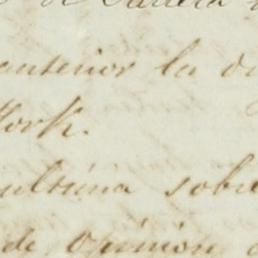 de Carrera
anterior la
York.
ultima sobre
de opinion